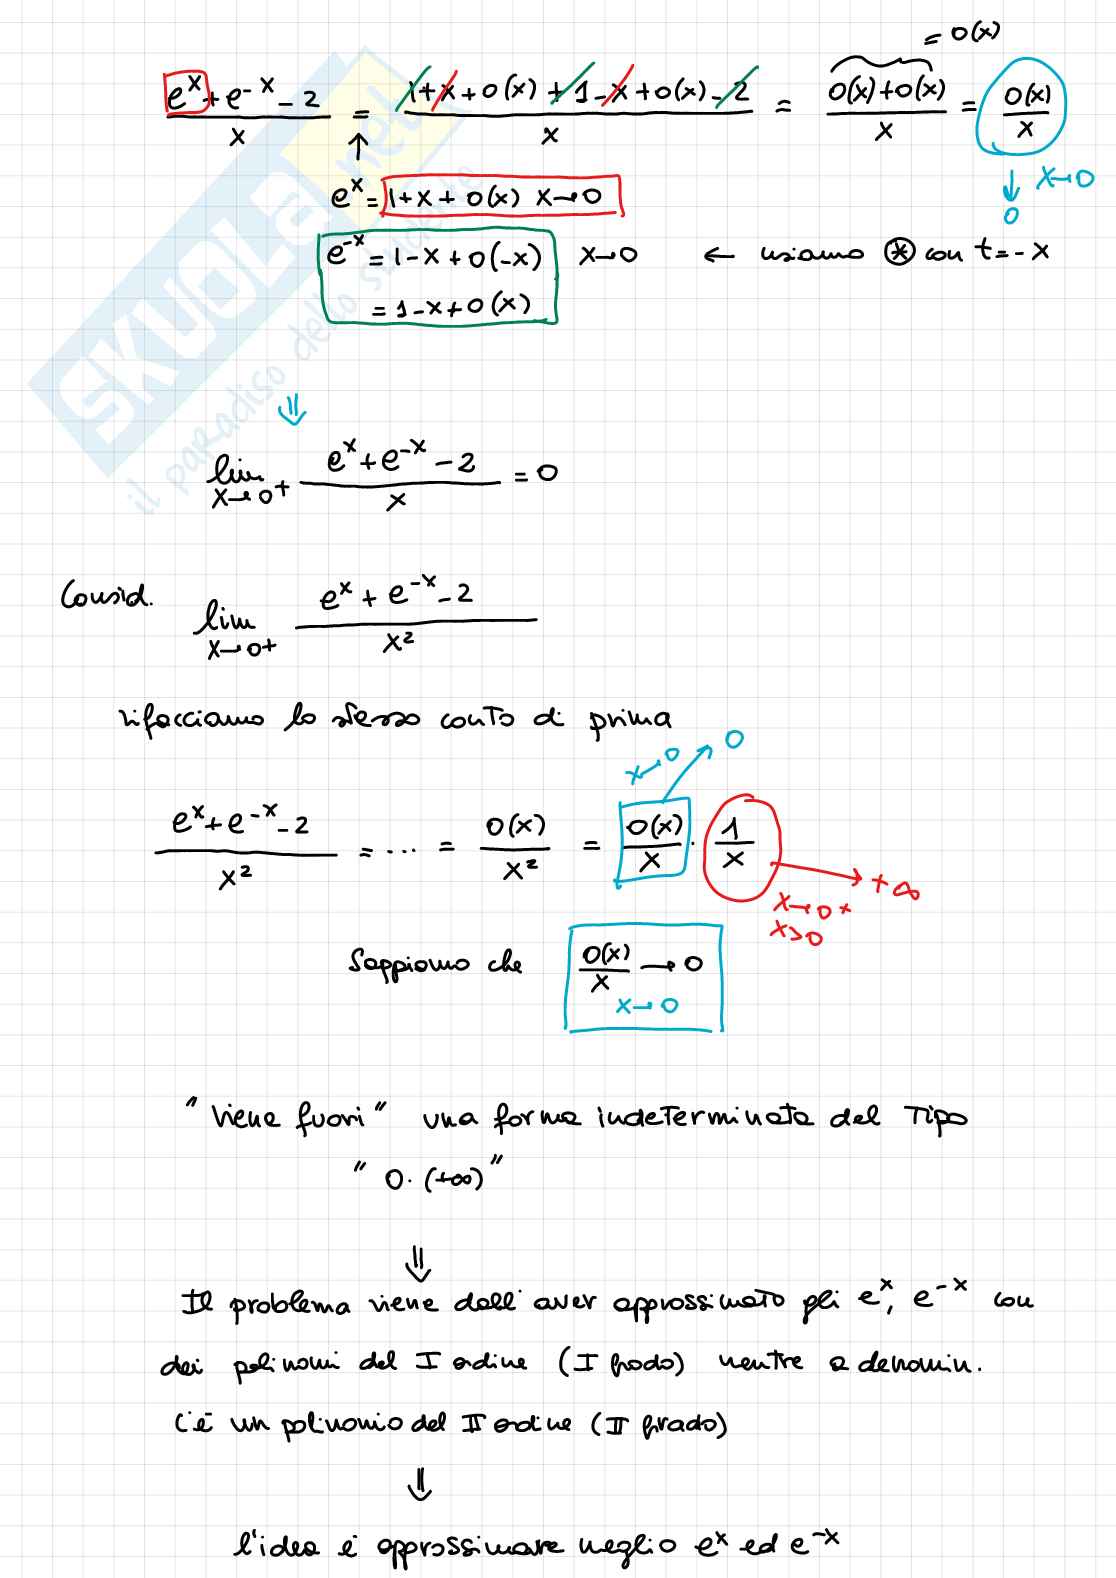 = o(x)
e^x + e^-x - 2 / x = 1 + x + o(x) + 1 - x + o(x) - 2 / x = o(x) + o(x) / x = o(x) / x
↓ x→0
0
↑
e^x = 1 + x + o(x) x→0
e^-x = 1 - x + o(-x) x→0 ← usiamo ⊛ con t = -x
= 1 - x + o(x)
⇓
lim x→0+ e^x + e^-x - 2 / x = 0
Consid. lim x→0+ e^x + e^-x - 2 / x²
rifacciamo lo stesso conto di prima
x→0 0
e^x + e^-x - 2 / x² = ... = o(x) / x² = o(x) / x · 1 / x → +∞
x→0+
x>0
Sappiamo che o(x) / x → 0
x→0
"Viene fuori" una forma indeterminata del tipo
"0·(+∞)"
⇓
Il problema viene dall'aver approssimato gli e^x, e^-x con
dei polinomi del I ordine (I grado) mentre a denomin.
c'è un polinomio del II ordine (II grado)
⇓
l'idea è approssimare meglio e^x ed e^-x
SKUOLA.net
il paradiso dello studente